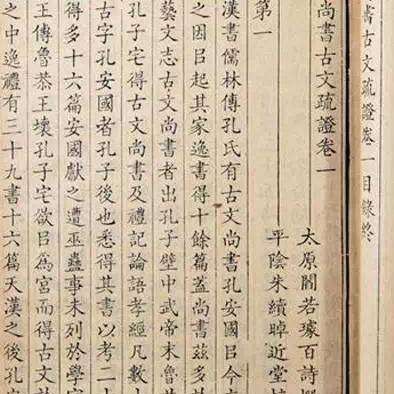 書古文疏證卷一目錄終
尚書古文疏證卷一
太原閻若璩百詩
平陰朱續晫近堂
第一
漢書儒林傳孔氏有古文尚書孔安國㠯今
之因㠯起其家逸書得十餘篇蓋尚書茲多
藝文志古文尚書者出孔子壁中武帝末魯
孔子宅得古文尚書及禮記論語孝經凡數十
古字孔安國者孔子後也悉得其書以考二十
得多十六篇安國獻之遭巫蠱事未列於學
王傳魯恭王壞孔子宅欲㠯爲宮而得古文於
之中逸禮有三十九書十六篇天漢之後孔安